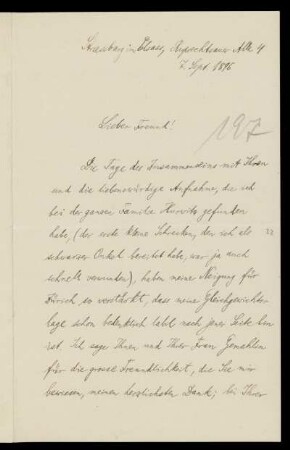 Strassburg i. Elsass, Ruprechtsauer Allee 4
7. Sept. 1896
Lieber Freund!
197
Die Tage des Zusammenseins mit Ihnen
und die liebenswürdige Aufnahme, die ich
bei der ganzen Familie Hurwitz gefunden
habe, (der erste kleine Schrecken, den ich als
schwarzer Onkel bereitet habe, war ja auch
schnell verwunden), haben meine Neigung für
Zürich so verstärkt, dass meine Gleichgewichts-
lage schon bedenklich labil nach jener Seite hin
ist. Ich sage Ihnen und Ihrer Frau Gemahlin
für die grosse Freundlichkeit, die Sie mir
bewiesen, meinen herzlichsten Dank; bei Ihrer